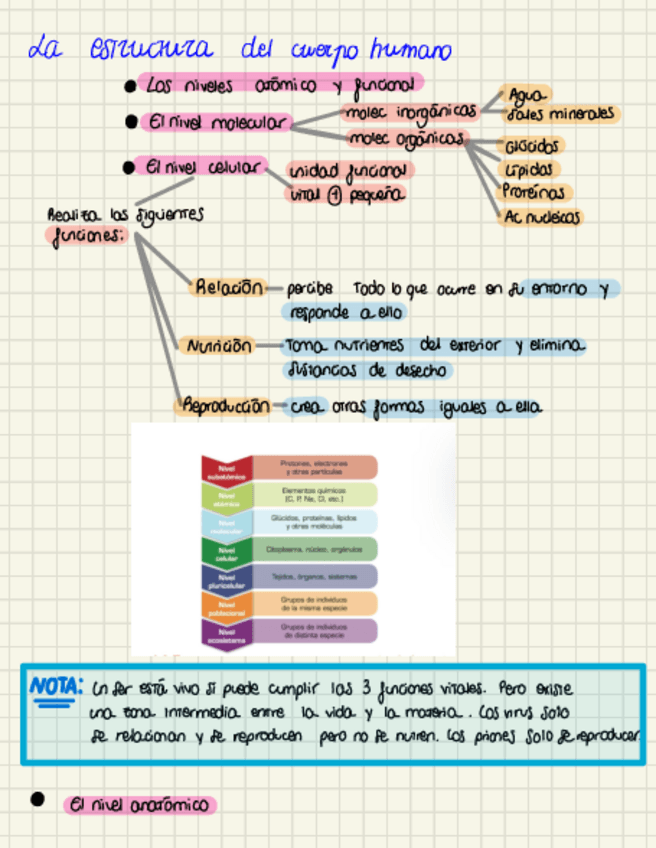 La estructura del cuerpo humano
Los niveles atómico y funcional
El nivel molecular
molec inorgánicas
Agua
Sales minerales
molec orgánicas
Glúcidos
Lípidos
Proteínas
Ac nucleicos
El nivel celular
unidad funcional
vital + pequeña
Realiza las siguientes
funciones:
Relación
percibe Todo lo que ocurre en su entorno y
responde a ello
Nutrición
Toma nutrientes del exterior y elimina
sustancias de desecho
Reproducción
crea otras formas iguales a ella
Nivel subatómico
Protones, electrones
y otras partículas
Nivel atómico
Elementos químicos
(C, P, Na, Cl, etc.)
Nivel molecular
Glúcidos, proteínas, lípidos
y otras moléculas
Nivel celular
Citoplasma, núcleo, orgánulos
Nivel pluricelular
Tejidos, órganos, sistemas
Nivel poblacional
Grupos de individuos
de la misma especie
Nivel ecosistema
Grupos de individuos
de distinta especie
NOTA: Un ser está vivo si puede cumplir las 3 funciones vitales. Pero existe
una zona intermedia entre la vida y la materia. Los virus solo
se relacionan y se reproducen pero no se nutren. Los priones solo se reproducen
El nivel anatómico